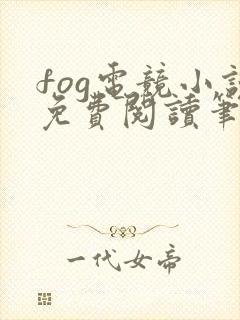 fog電競小說
免費閱讀筆
一代女帝